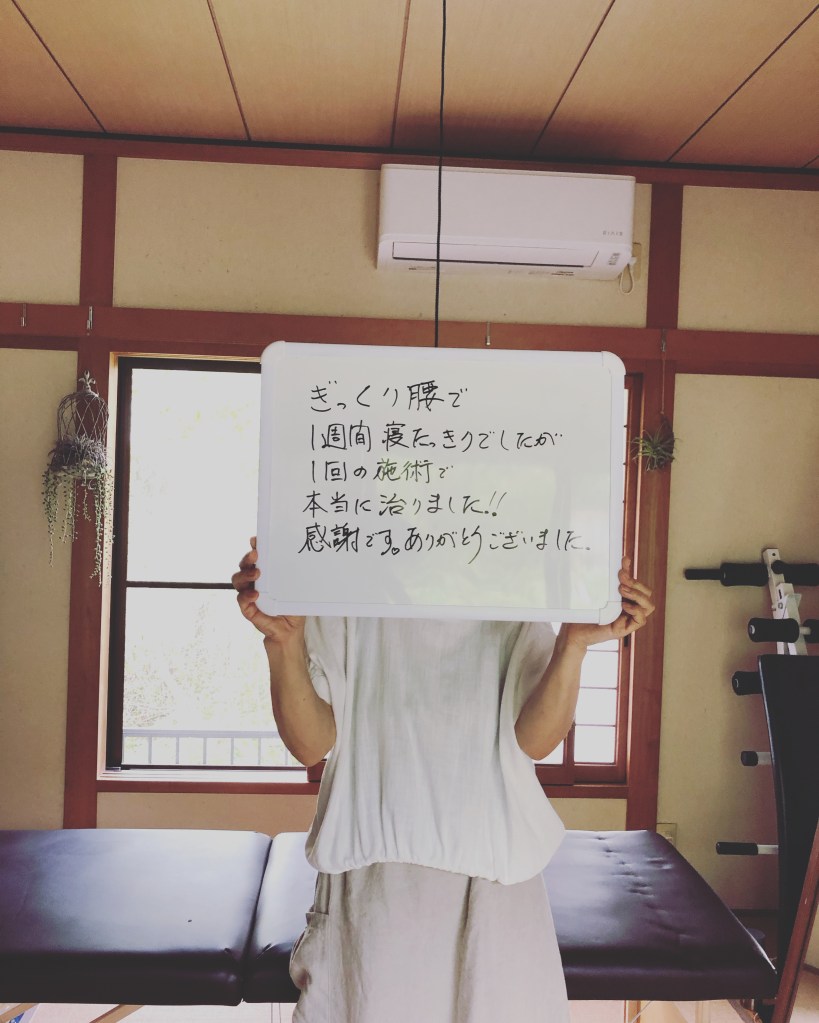 ぎっくり腰で
1週間寝たっきりでしたが
1回の施術で
本当に治りました!!
感謝です。ありがとうございました。